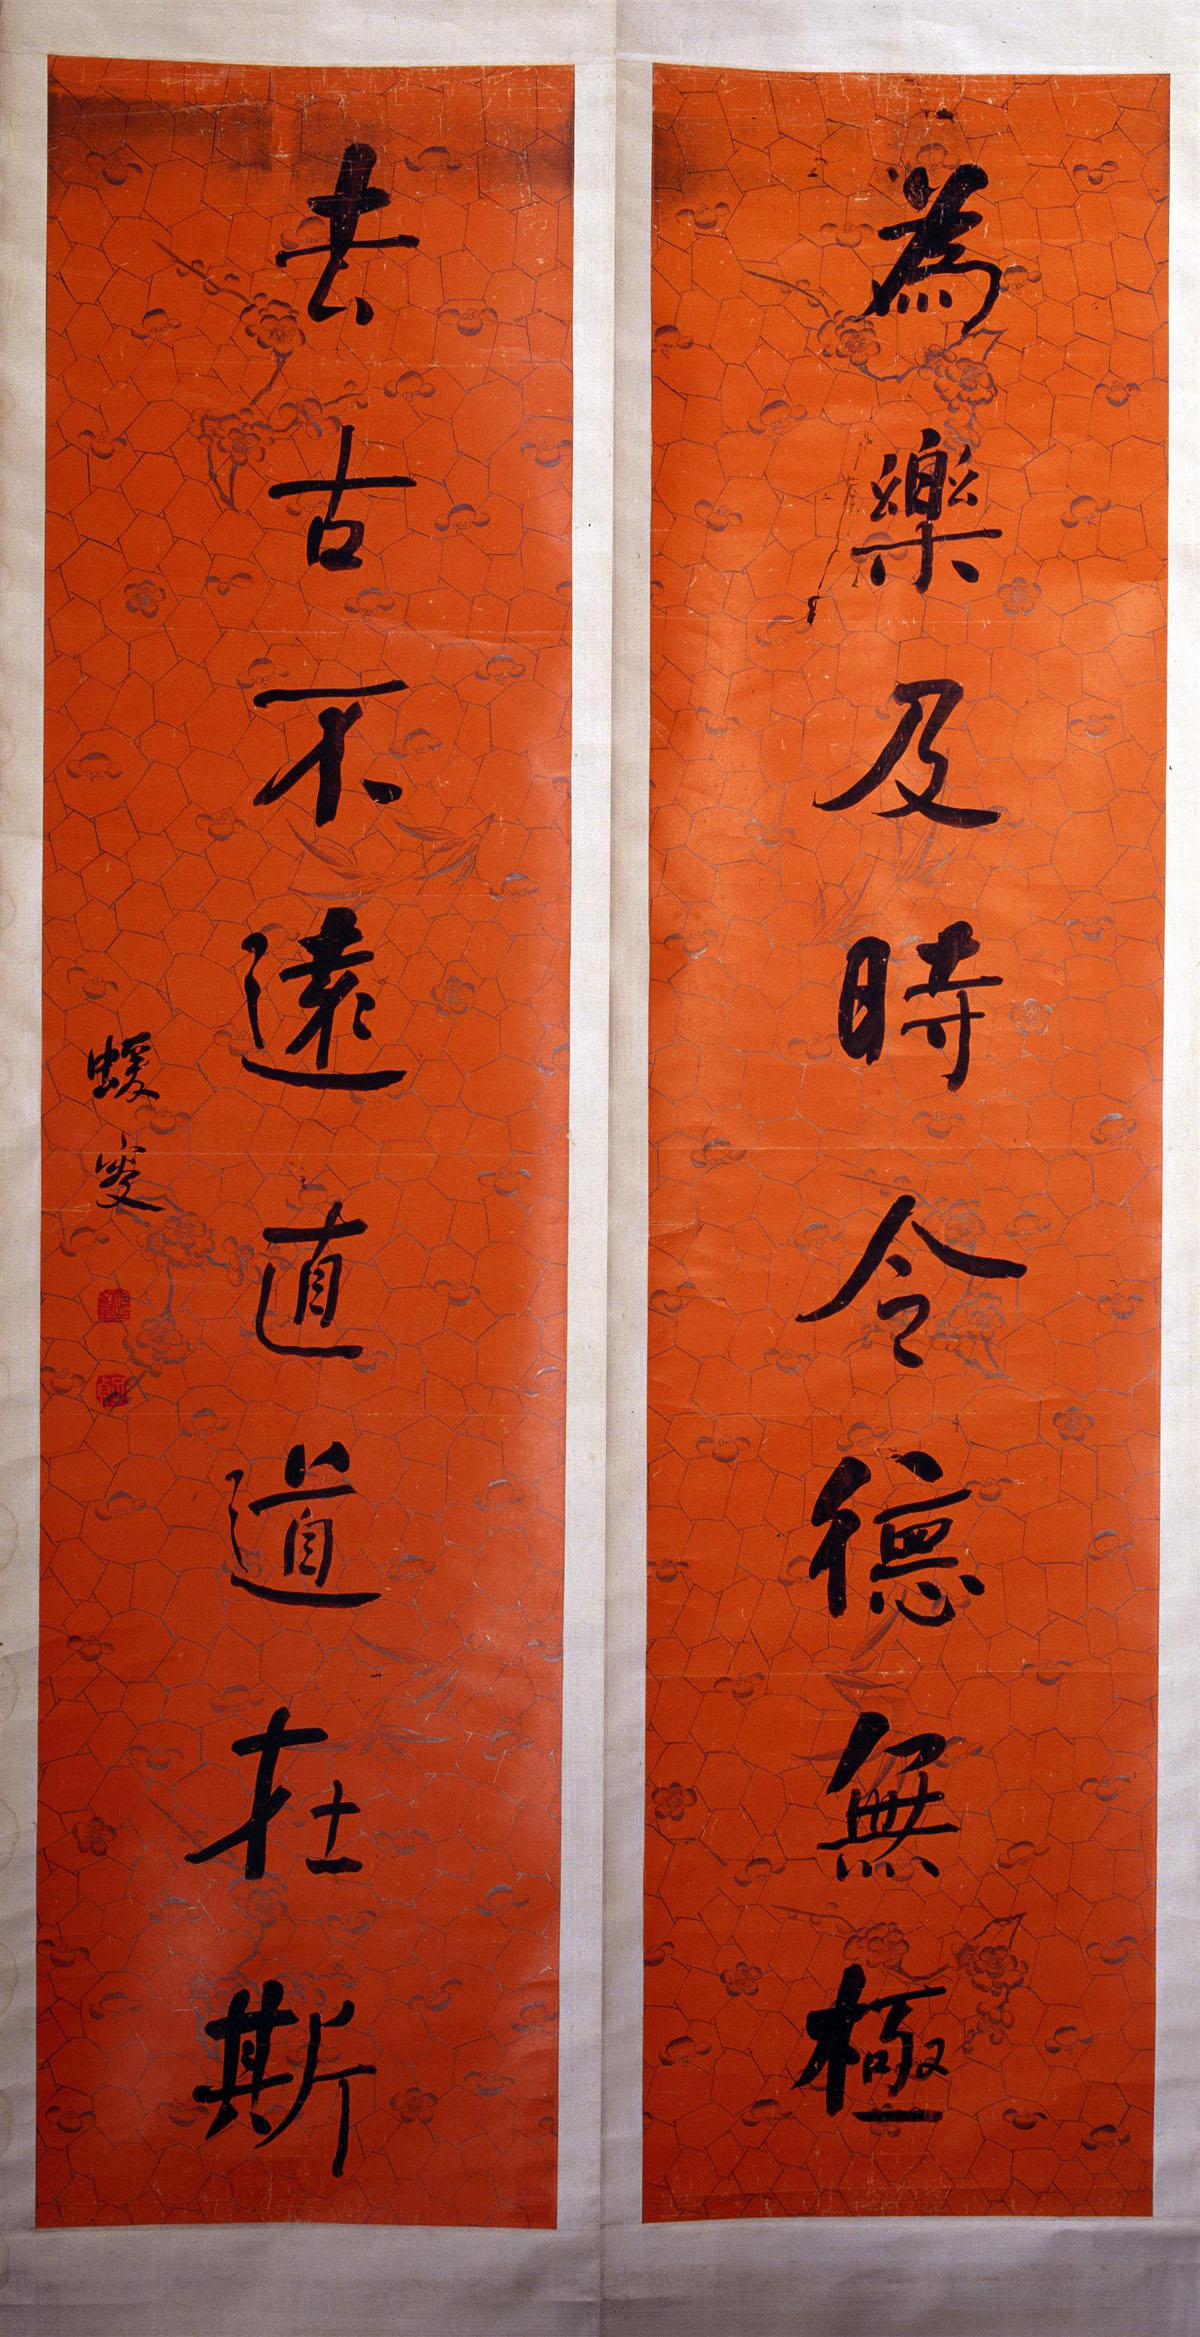 為樂及時令德無極
去古不遠直道在斯
蝯叟